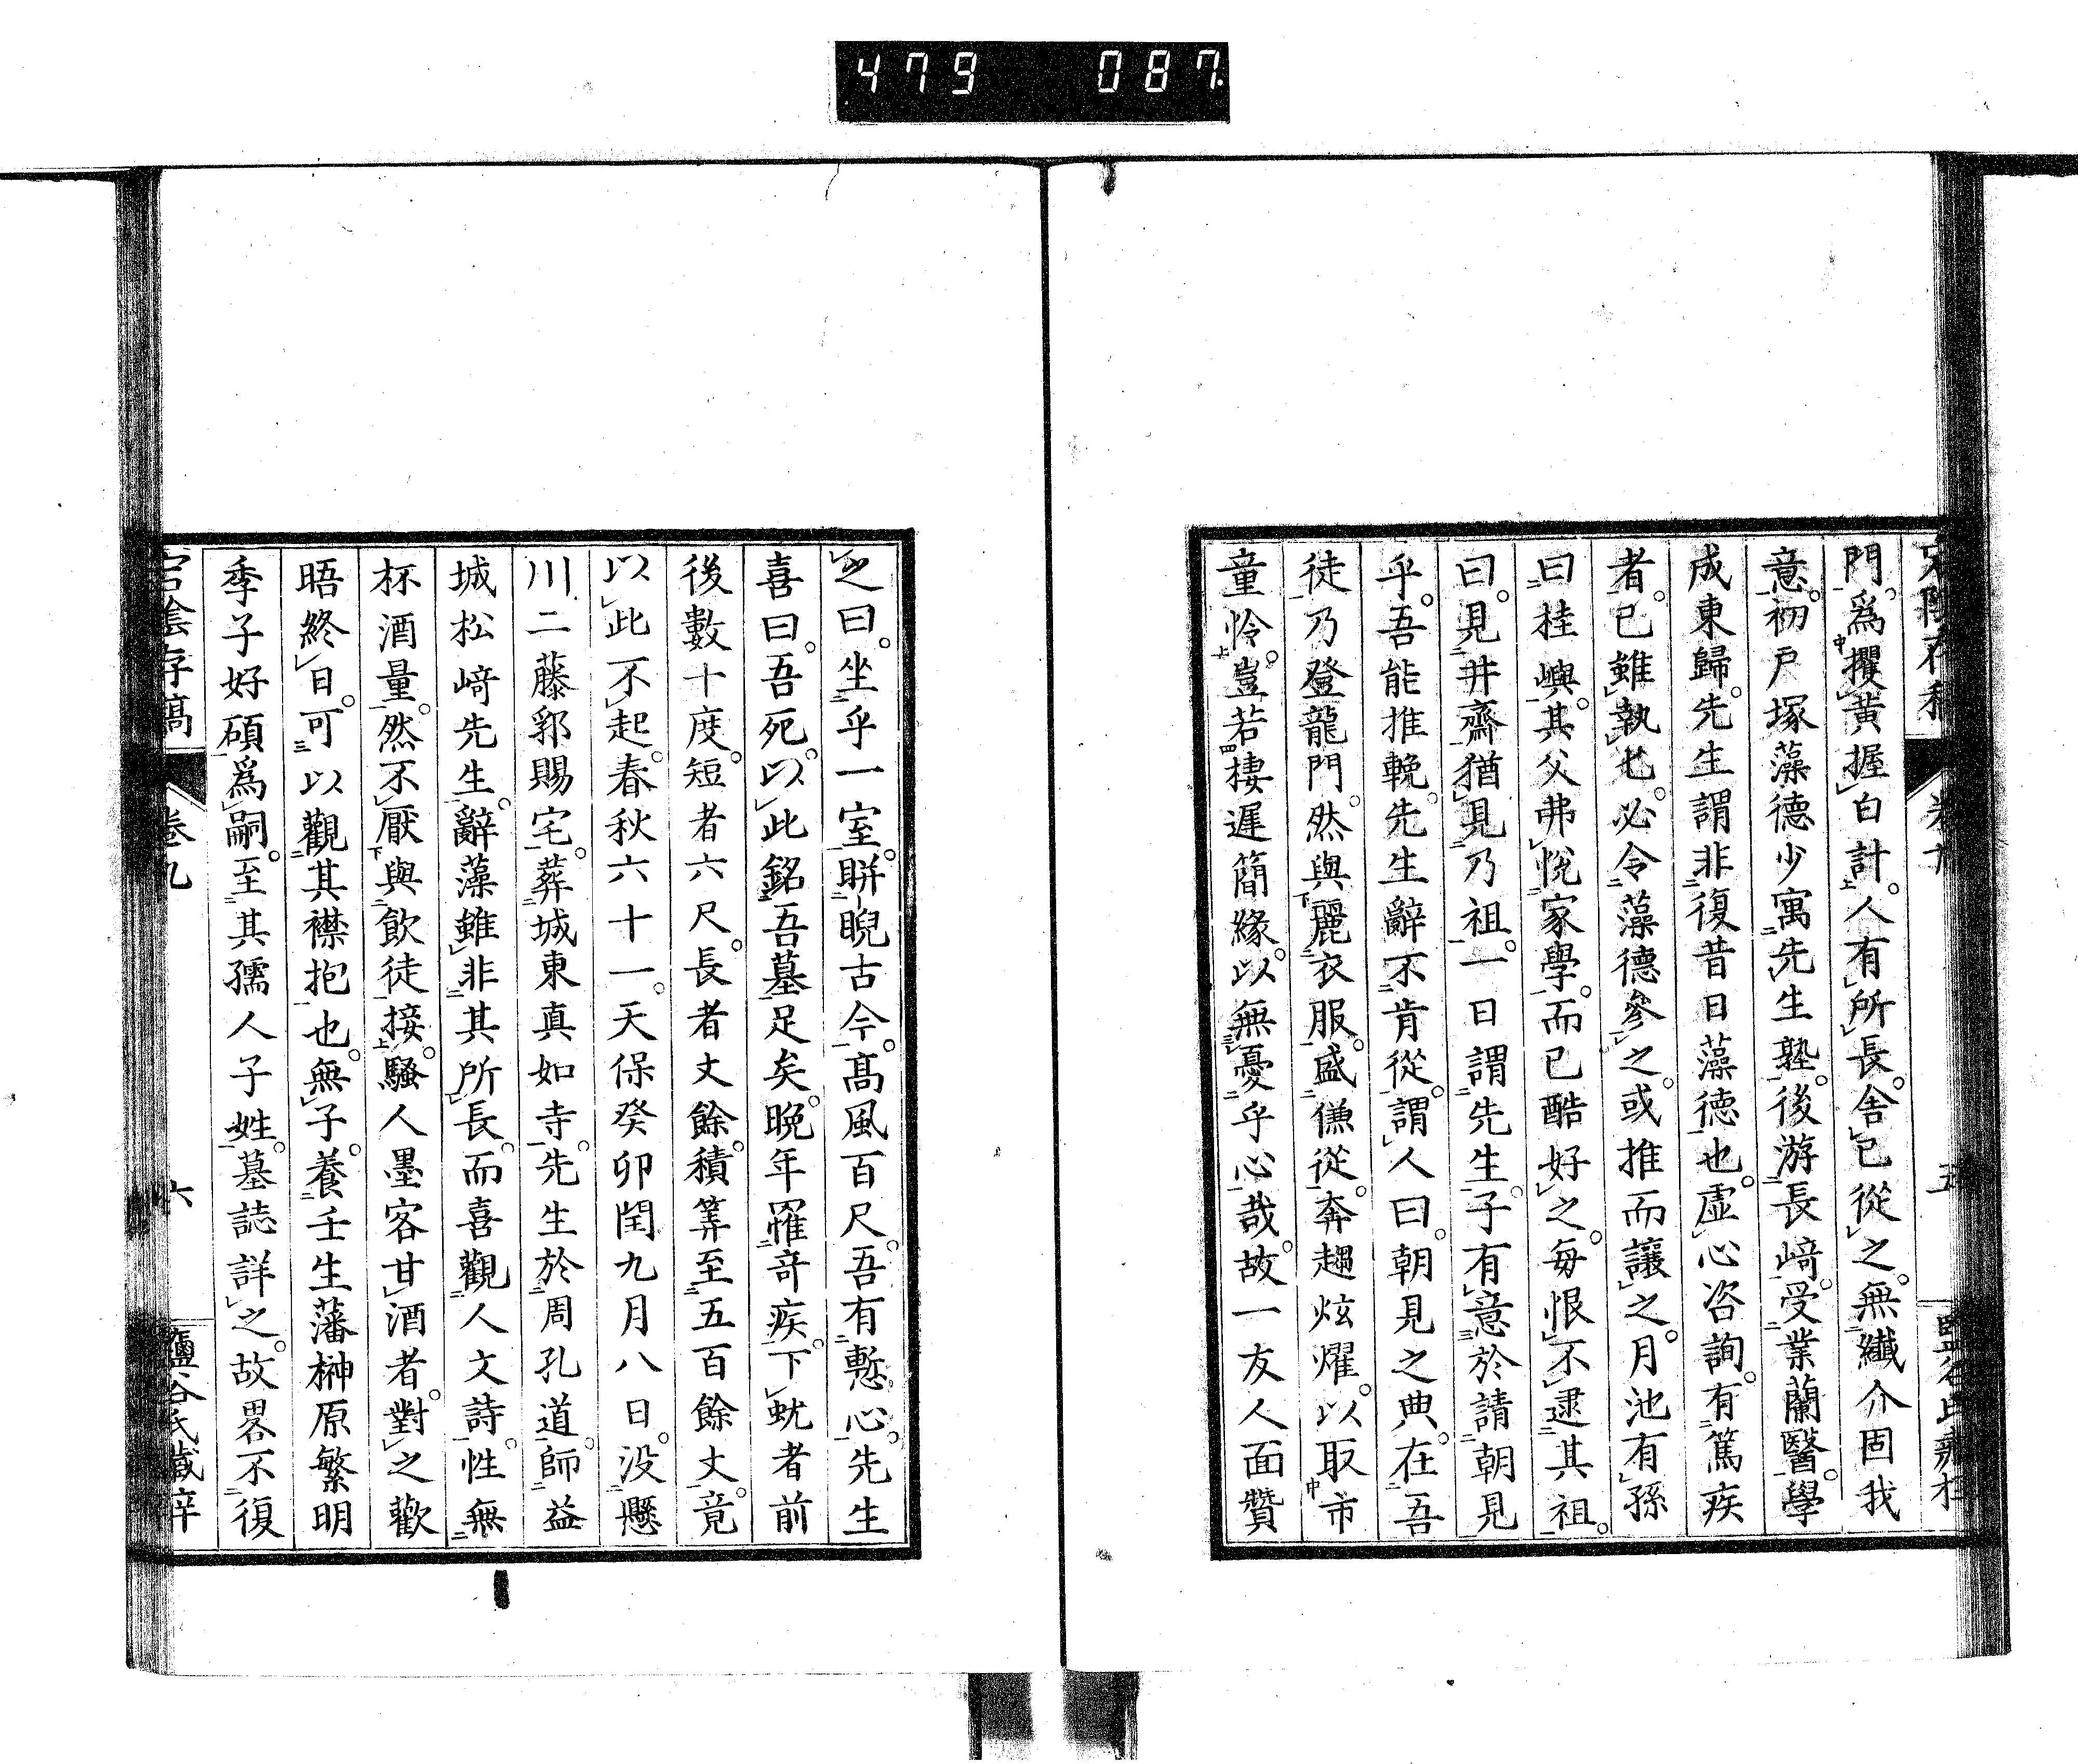 479 087
門。爲攫黃握白計。人有所長。舍已從之。無纖介固我
意。初戸塚藻德少寓先生塾。後游長崎。受業蘭醫。學
成東歸。先生謂非復昔日藻德也。虛心咨詢。有篤疾
者。已雖執匕。必令藻德參之。或推而讓之。月池有孫
曰桂嶼。其父弗悅家學。而已酷好之。每恨不逮其祖。
曰。見井齋猶見乃祖。一日謂先生。子有意於請朝見
乎。吾能推輓。先生辭不肯從。謂人曰。朝見之典。在吾
徒乃登龍門。然與麗衣服。盛傔從。奔趨炫燿。以取市
童怜。豈若棲遲簡緣。以無憂乎心哉。故一友人面贊
之曰。坐乎一室。聛睨古今。高風百尺。吾有慙心。先生
喜曰。吾死。以此銘吾墓足矣。晩年罹奇疾。下蚘者前
後數十度。短者六尺。長者丈餘。積筭至五百餘丈。竟
以此不起。春秋六十一。天保癸卯閏九月八日。没懸
川二藤郭賜宅。葬城東真如寺。先生於周孔道。師益
城松崎先生。辭藻雖非其所長。而喜觀人文詩。性無
杯酒量。然不厭與飲徒接。騷人墨客甘酒者。對之歡
晤終日。可以觀其襟抱也。無子。養壬生藩榊原繁明
季子好碩爲嗣。至其孺人子姓。墓誌詳之。故畧不復
宕陰存稿 卷九 六 鹽谷氏藏梓